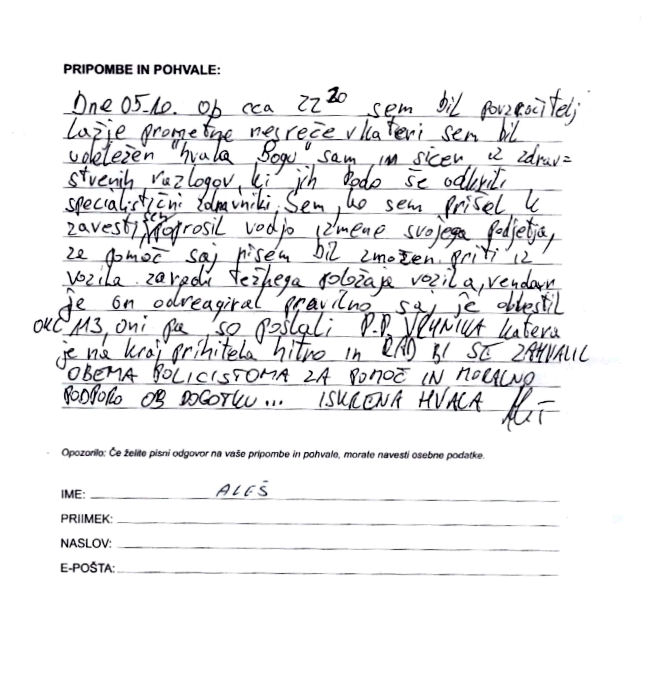 PRIPOMBE IN POHVALE:
Dne 05.10. ob cca 22 20 sem bil povzročitelj
lažje prometne nesreče v kateri sem bil
udeležen "hvala Bogu" sam, in sicer iz zdrav=
stvenih razlogov, ki jih bodo še odkrili
specialistični zdravniki. Sem, ko sem prišel k
zavesti, sem poprosil vodjo izmene svojega podjetja,
za pomoč saj nisem bil zmožen priti iz
vozila zaradi težkega položaja vozila, vendar
je on odreagiral pravilno saj je obvestil
OKC 113, oni pa so poslali P.P. VRHNIKA katera
je na kraj prihitela hitro in RAD BI SE ZAHVALIL
OBEMA POLICISTOMA ZA POMOČ IN MORALNO
PODPORO OB DOGOTKU... ISKRENA HVALA
Opozorilo: Če želite pisni odgovor na vaše pripombe in pohvale, morate navesti osebne podatke.
IME: ALEŠ
PRIIMEK:
NASLOV:
E-POŠTA: